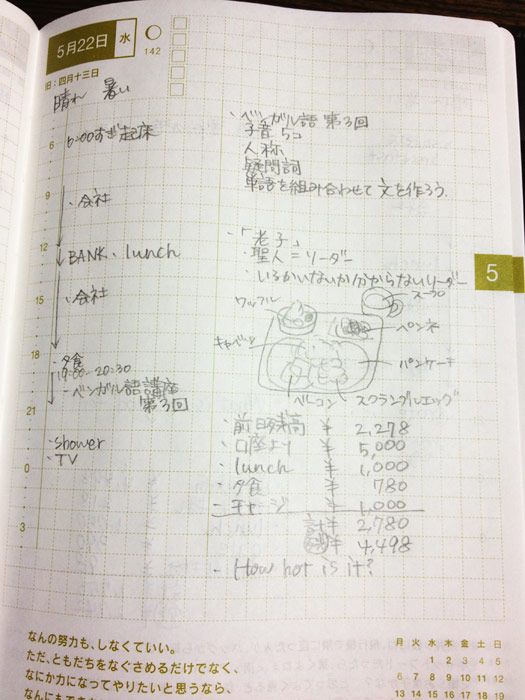 5月22日 水
142
旧:四月十三日
晴れ 暑い
6 6:00すぎ起床
9
・会社
12
・BANK・lunch
15
・会社
18
・夕食
19:00-20:30
-ベンガル語講座
第3回
21
・shower
・TV
0
3
・ベンガル語 第3回
子音 5コ
人称
疑問詞
単語を組み合わせて文を作ろう.
・「老子」
・聖人=リーダー
・いるかいないか分からないリーダー
5
スープ
ワッフル
ペンネ
キャベツ
パンケーキ
ベーコン
スクランブルエッグ
・前日残高 ¥ 2,278
・口座より ¥ 5,000
・lunch ¥ 1,000
・夕食 ¥ 780
-チャージ ¥ 1,000
計¥ 2,780
残¥ 4,498
- How hot is it?
なんの努力も、しなくていい。
ただ、ともだちをなぐさめるだけでなく、
なにか力になってやりたいと思うなら、
月 火 水 木 金 土 日
1 2 3 4 5
6 7 8 9 10 11 12
13 14 15 16 17 18 19